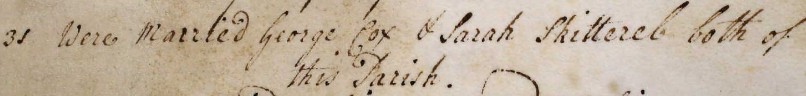 31 Were Married George Cox & Sarah Skitterel both of
this Parish.